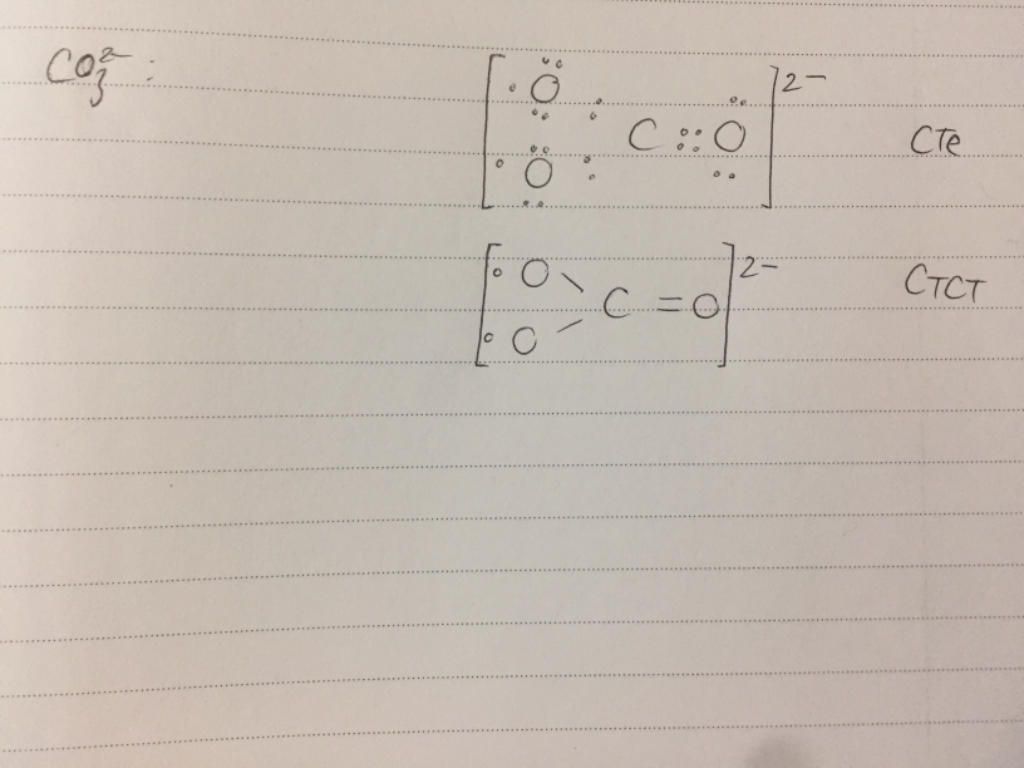 CO₃²⁻ :
[ O O C :: O ]²⁻ CTe
[ O O C = O ]²⁻ CTCT